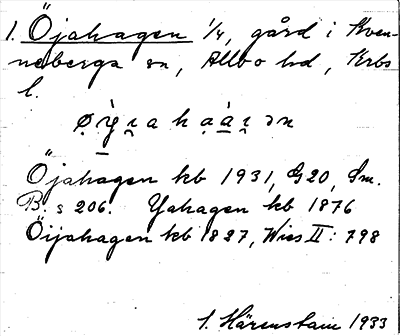 1. Öjahagen 1/4, gård i Kven-
neberga sn, Allbo hd, Krbs
l.
Öjahagen kb 1931, G20, Sm.
B. s 206. Yahagen kb 1876
Öijahagen kb 1827, Wies II: 798
S. Härenstam 1933